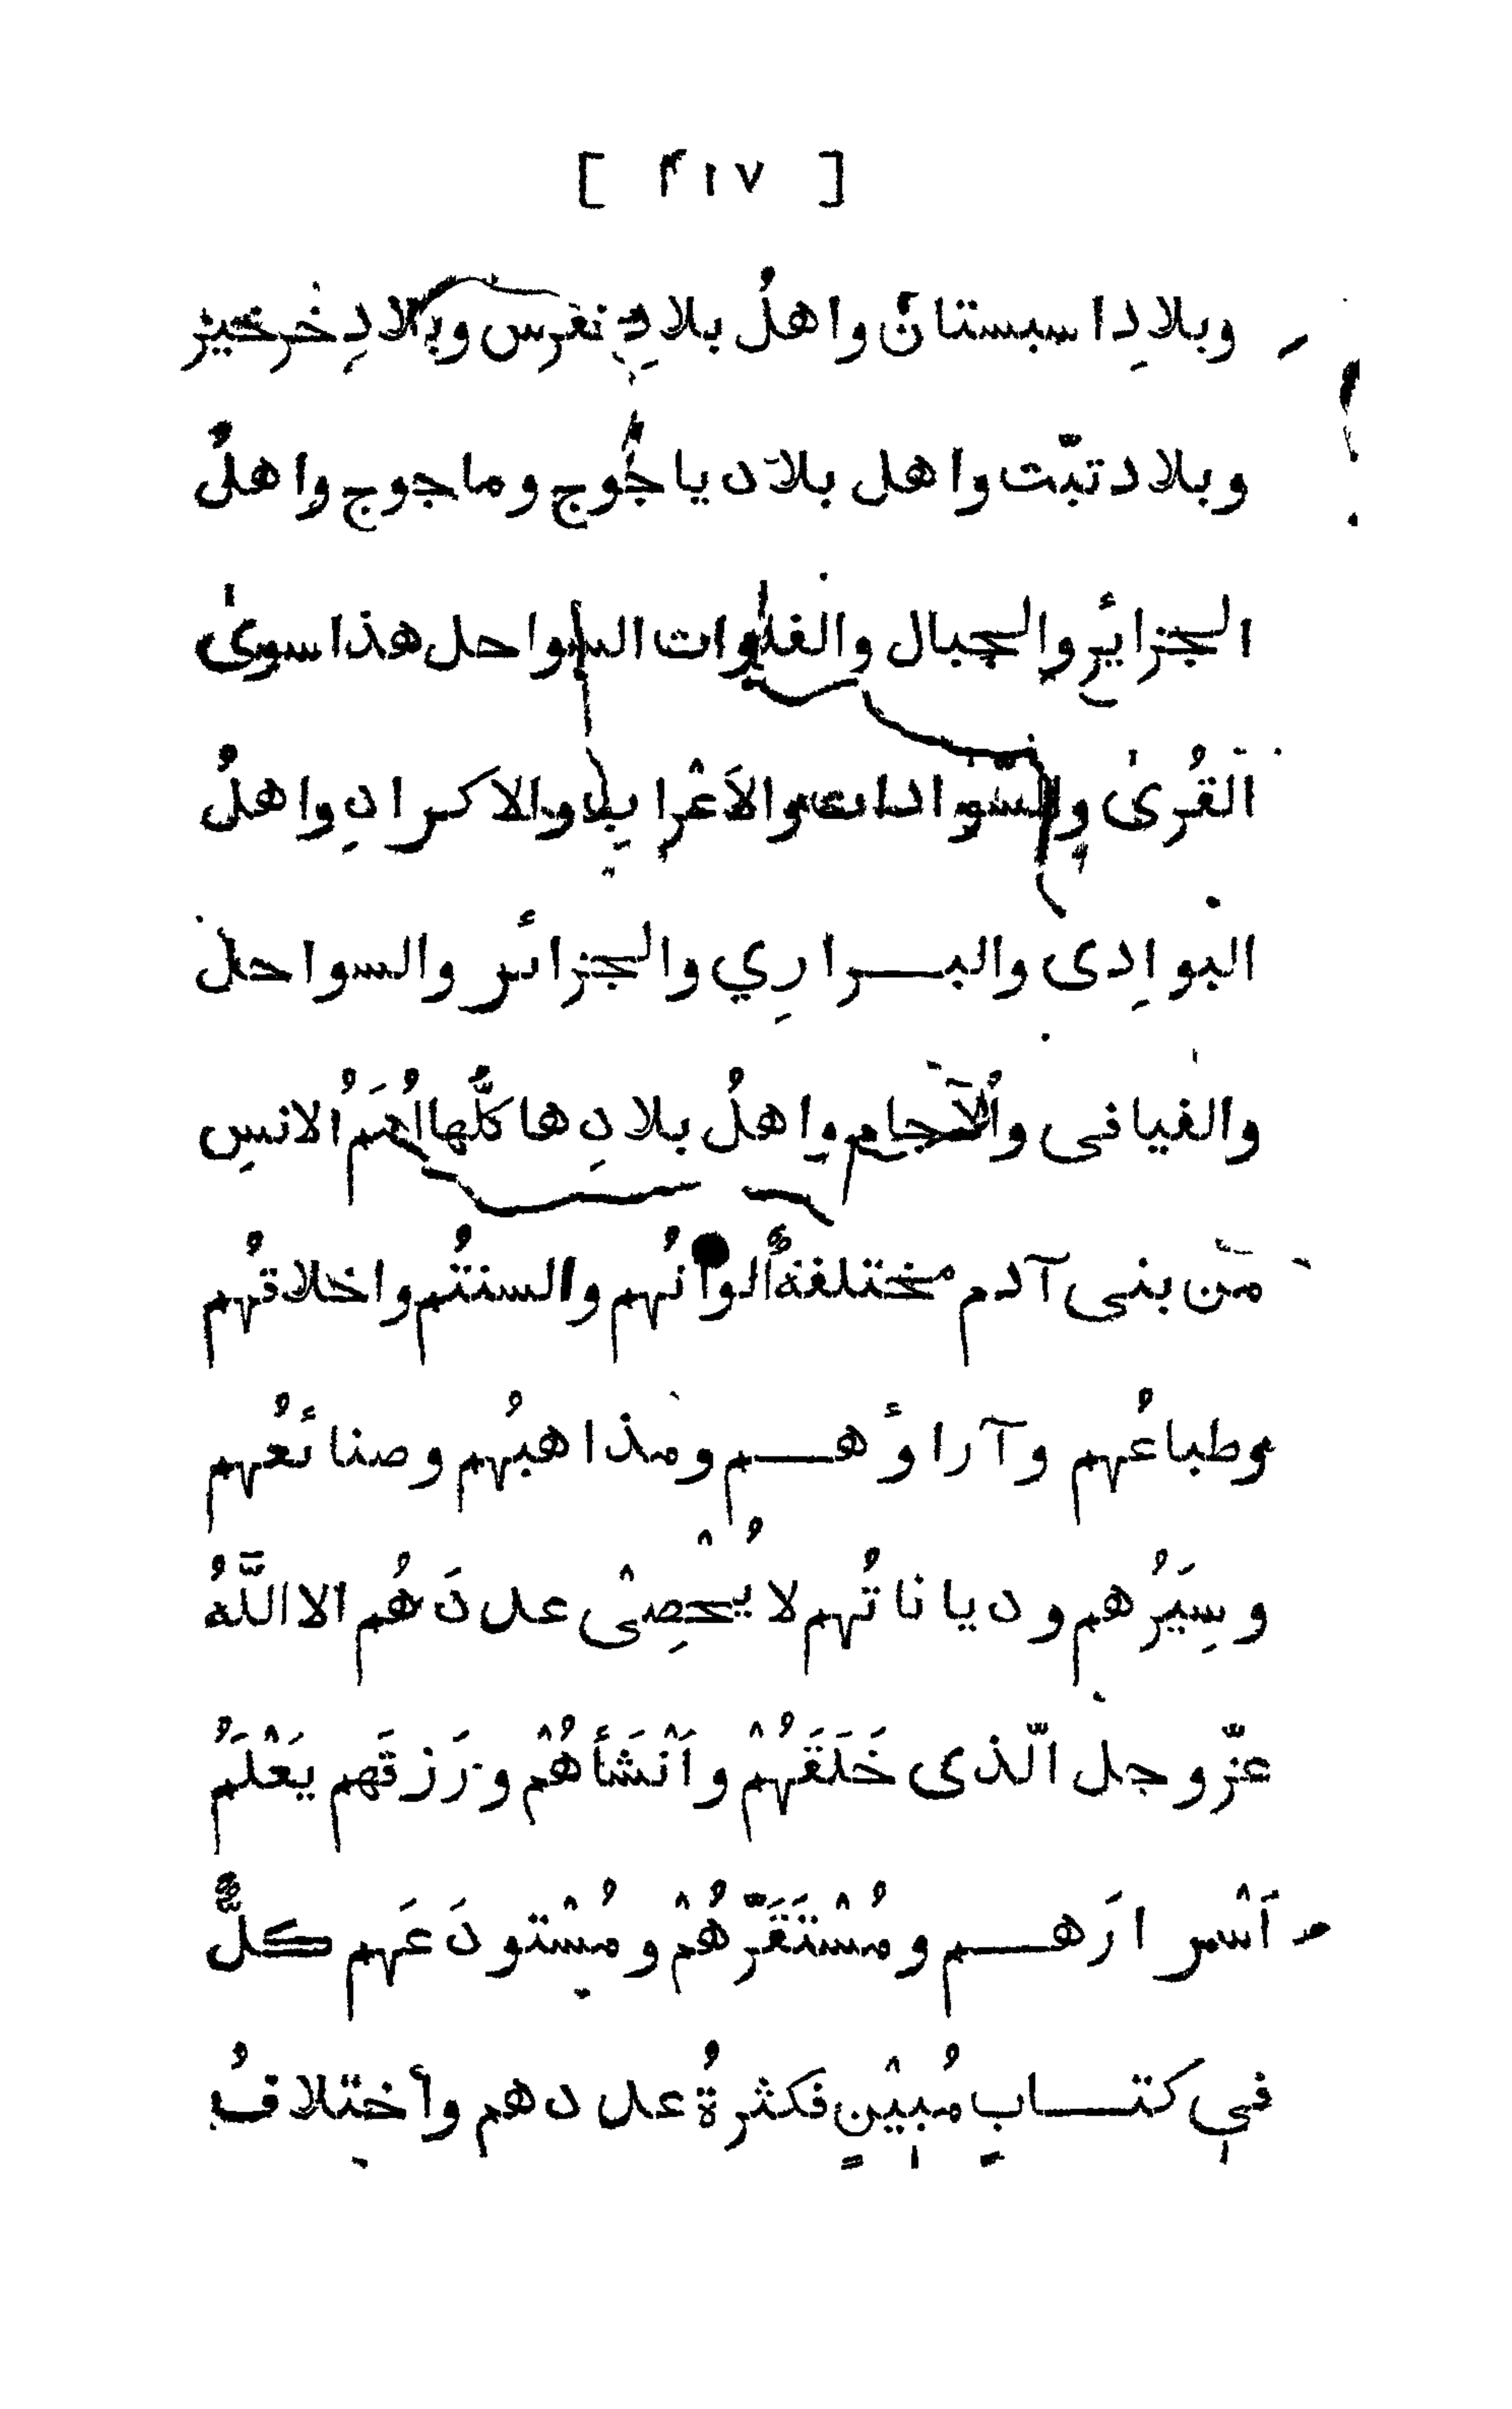 [ ٢١٧ ]
وبلادِ اسبستان واهلُ بلادِ نغرس وبلادِ خرخيز
وبلاد تبّت واهل بلاد ياجُوج وماجوج واهلُ
الجزايرِ والجبال والفلوات السواحل هذا سوىٰ
القُرىٰ والسّوادات والاَعْرابِ والاكرادِ واهلُ
البوادِى والبراري والجزائر والسواحل
والفيافى والآجام واهلُ بلادِها كلُّها اُمَمُ الانسِ
من بنى آدم مختلفةٌ الوانُهم والسنتُهم واخلاقُهم
وطباعُهم وآراؤهم ومذاهبُهم وصنائعُهم
وسِيَرُهم ودياناتُهم لا يُحْصِىْ عددَهُم الا اللّٰهُ
عزّوجل الّذى خَلَقَهُمْ واَنْشَأهُمْ ورَزقَهم يَعْلَمُ
اَسْرارَهم ومُسْتَقَرَّهُمْ ومُسْتودَعَهم كلٌّ
في كتابٍ مُبِيْنٍ فكثرةُ عددهم وأختلافُ